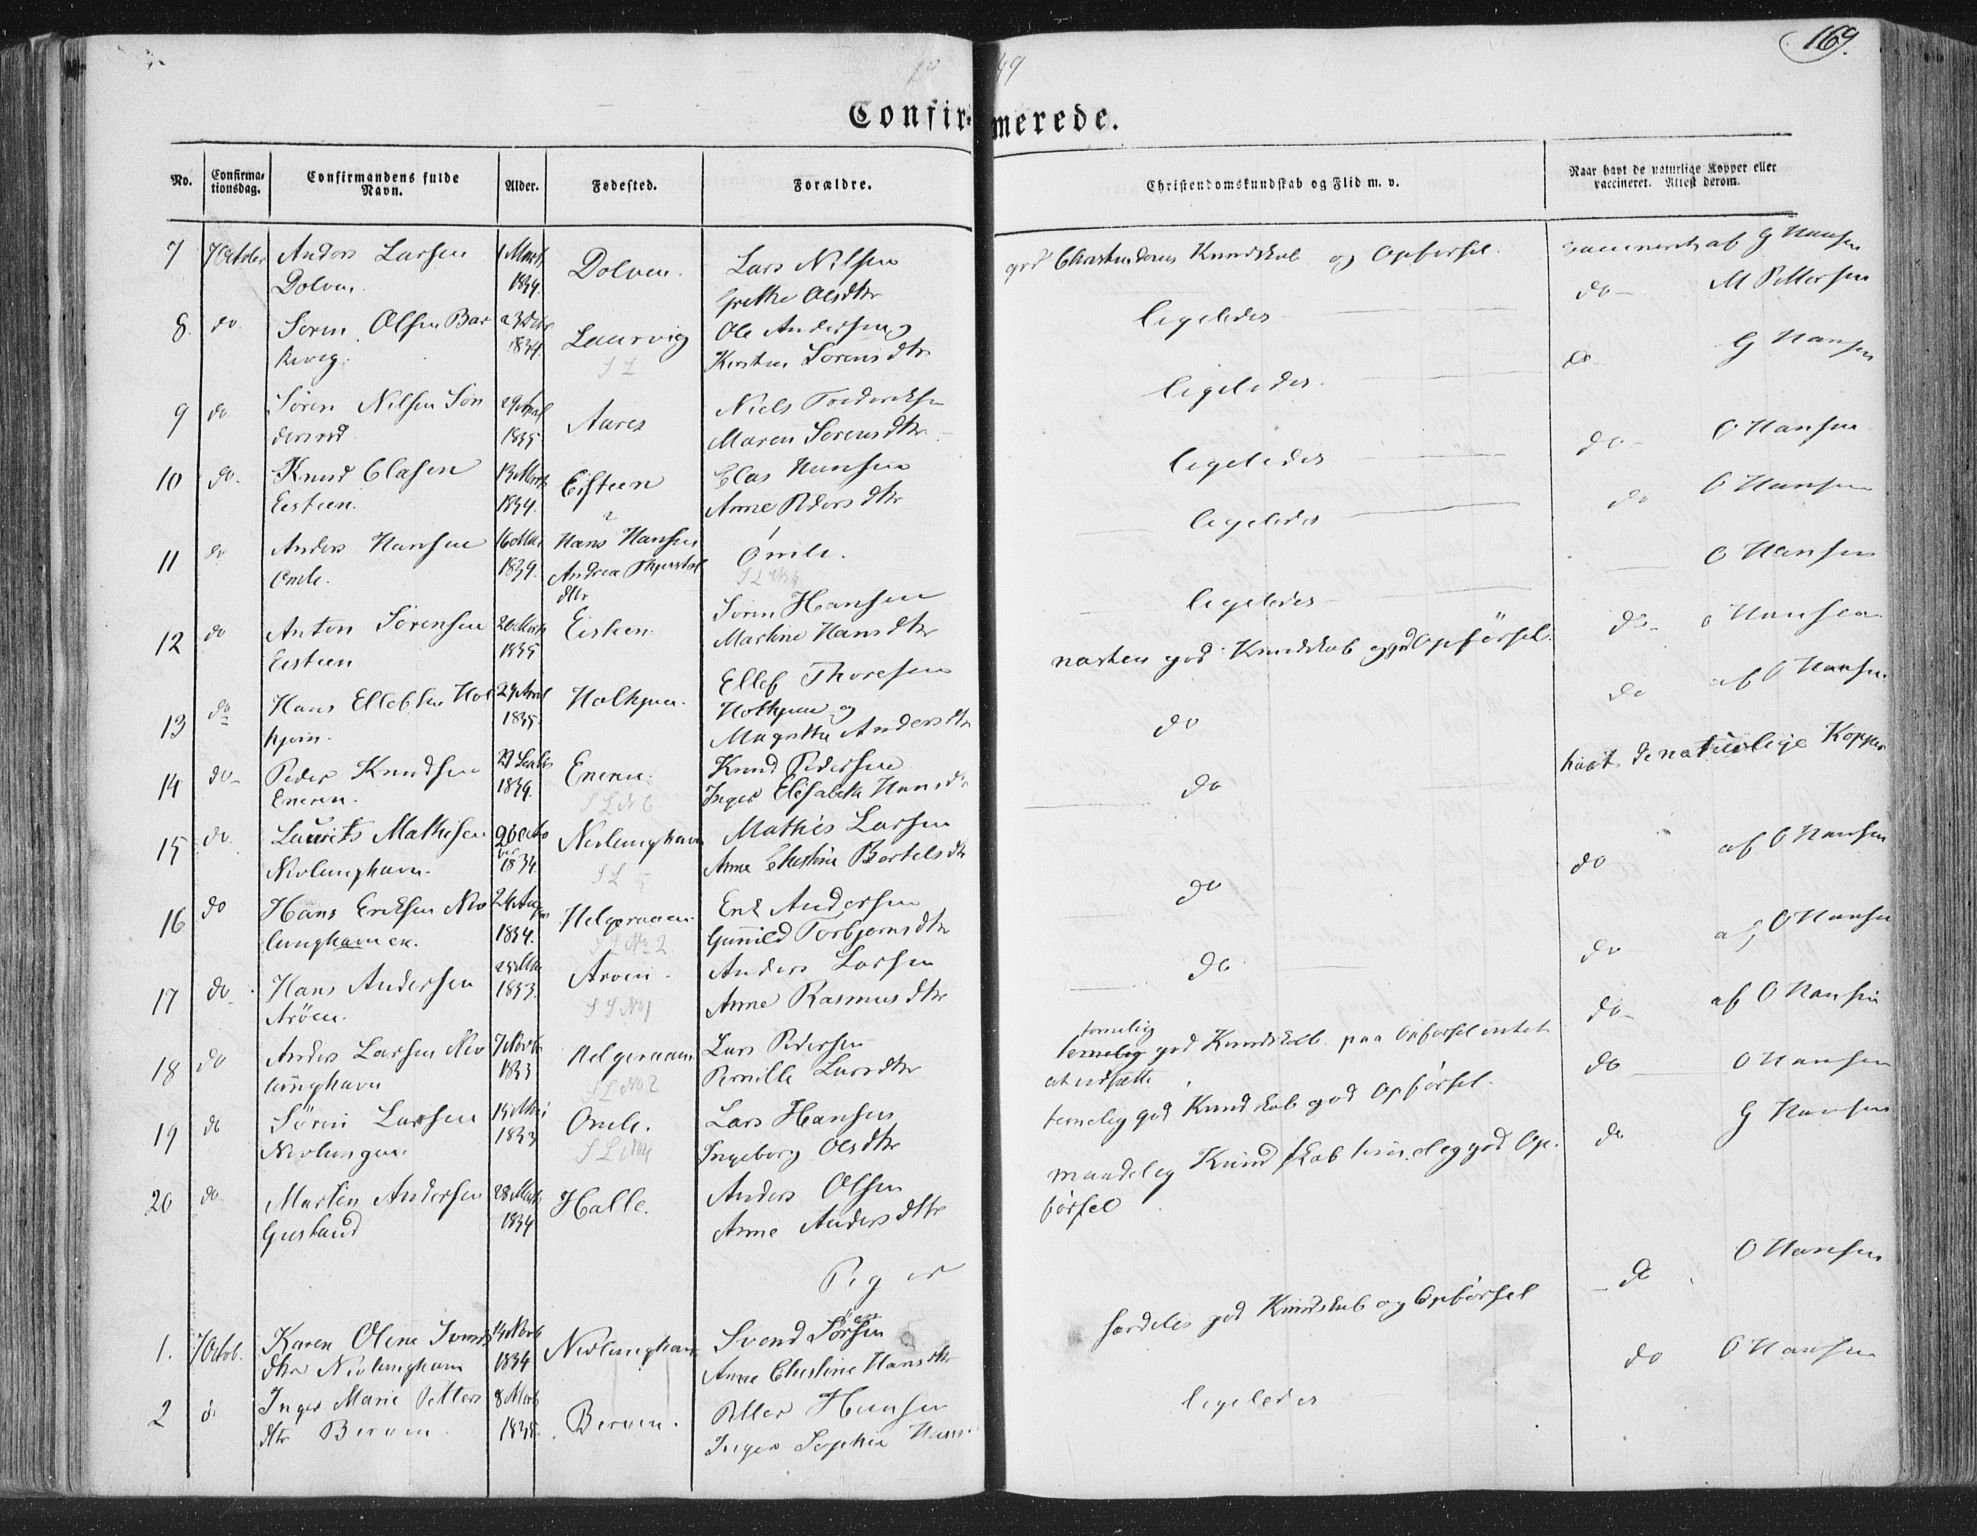 169.
49
Confirmerede.
No.
Confirma-
tionsdag.
Confirmandens fulde
Navn.
Alder.
Fødested.
Forældre.
Christendomskundskab og Flid m. v.
Naar havt de naturlige Kopper eller
vaccineret. Attest derom.
7 7 October Anders Larsen 1 Marts Dolven. Lars Nilsen god Christendoms Kundskab og Opførsel. vaccineret af G Hansen
Dolven. 1834. Grethe Olsdtr
8. do. Søren Olsen Bar 23 Laurvig Ole Andersen og ligeledes do M Pettersen
kevig. 1834. Kirsten Sørensdtr
S L
9 do Søren Nilsen Søn 29 April Aares Niels Frederiksen ligeledes. do G Hansen
dersrød 1835 Maren Sørensdtr
10 do. Knud Clasen 13 Marts Eisteen Clas Hansen ligeledes do O Hansen
Eisteen. 1834. Anne Pedersdtr
11 do Anders Hansen 16 Mai Hans Hansen Omle. ligeledes do O Hansen
Omle. 1834. Andrea
dtr
12 do Anton Sørensen 20 Marts Eisteen. Søren Hansen ligeledes O Hansen
Eisteen 1835 Martine Hansdtr
13 do Hans Ellefsen Hol 24 April Holkjøen. Ellef Thoresen næsten god Kundskab og god Opførsel. do O Hansen
kjøen. 1835. Holkjøen og
Magrethe Andersdtr
14 do Peder Knudsen Eneren. Knud Pedersen do do af O Hansen
Eneren. 1834. Inger Elisabeth Hansd
S L N 6
15 do. Laurits Mathisen 20 octo Nevlunghavn Mathis Larsen do havt de naturlige Kopper
Nevlunghavn. ber 1834. Anne Christine Bertelsdtr
S L
16 do Hans Eriksen Nev 24 Aug Helgeraaen Erik Andersen do do af O Hansen
lunghavnen. 1834. Gunnild Torbjørnsdtr
S L No 2
17 do Hans Andersen Arøen. Anders Larsen do do af O Hansen
Arøen. 1833. Anne Rasmusdtr
S L No 1
18 do Anders Larsen Nev 7 Helgeraaen Lars Pedersen temelig god Kundskab paa Opførsel intet do af O Hansen
lunghavn 1833 Pernille Larsdtr at udsætte
S L No 2
19 do Søren Larsen 15 Mai Omle. Lars Hansen temelig god Kundskab god Opførsel. do O Hansen
Nevlungen 1833 Ingeborg Olsdtr
S L No 4
20 do Martin Andersen 28 Marts Halle. Anders Olsen maadelig Kundskab temelig god Op- do G Hansen
Gusland 1834 Anne Andersdtr førsel
Piger
1. 7 Octob. Karen Olene Svends 14 Novb Nevlunghavn Svend Sørsen særdeles god Kundskab og Opførsel do O Hansen
dtr Nevlunghavn 1834 Anne Christine Hansdtr
2 do Inger Marie Petters 8 Marts Berven. Petter Hansen ligeledes do O Hansen
dtr Berven 1835. Inger Sophie Hans